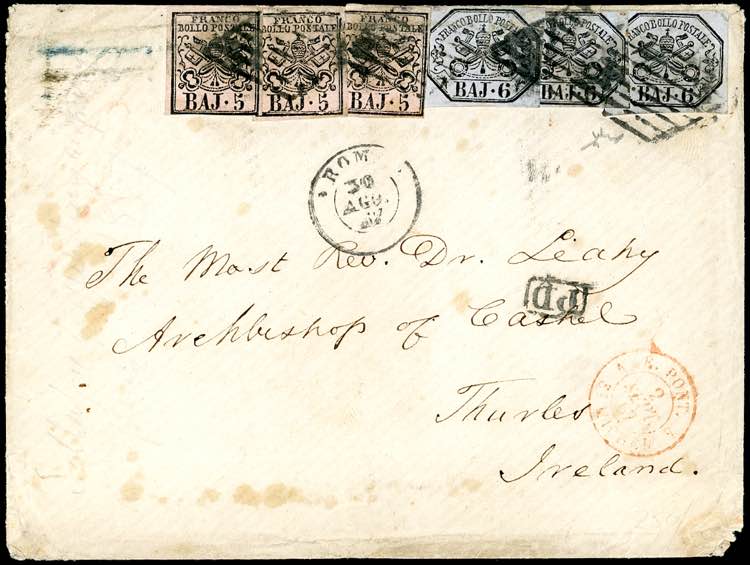 FRANCO
BOLLO POSTALE
BAJ·5
FRANCO
BOLLO POSTALE
BAJ·5
FRANCO
BOLLO POSTALE
BAJ·5
FRANCO BOLLO POSTALE
BAJ·6
POSTALE
BAJ·6
FRANCO BOLLO POSTALE
BAJ·6
ROM
30
AGO.
The Most Rev. Dr. Leahy
P.D
Archbishop of Cashel
E. PONT.
2
Thurles
Ireland.